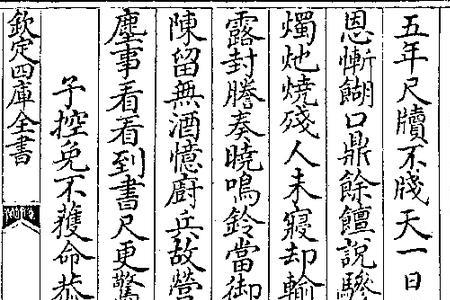 五年尺牘不牋天一日
恩慚餬口鼎餘饘說驂
燭灺燒殘人未寢却輸
露封謄奏曉鳴鈴當御
陳留無酒憶廚兵故營
塵事看看到書尺更驚
子控免不獲命恭
欽定四庫全書